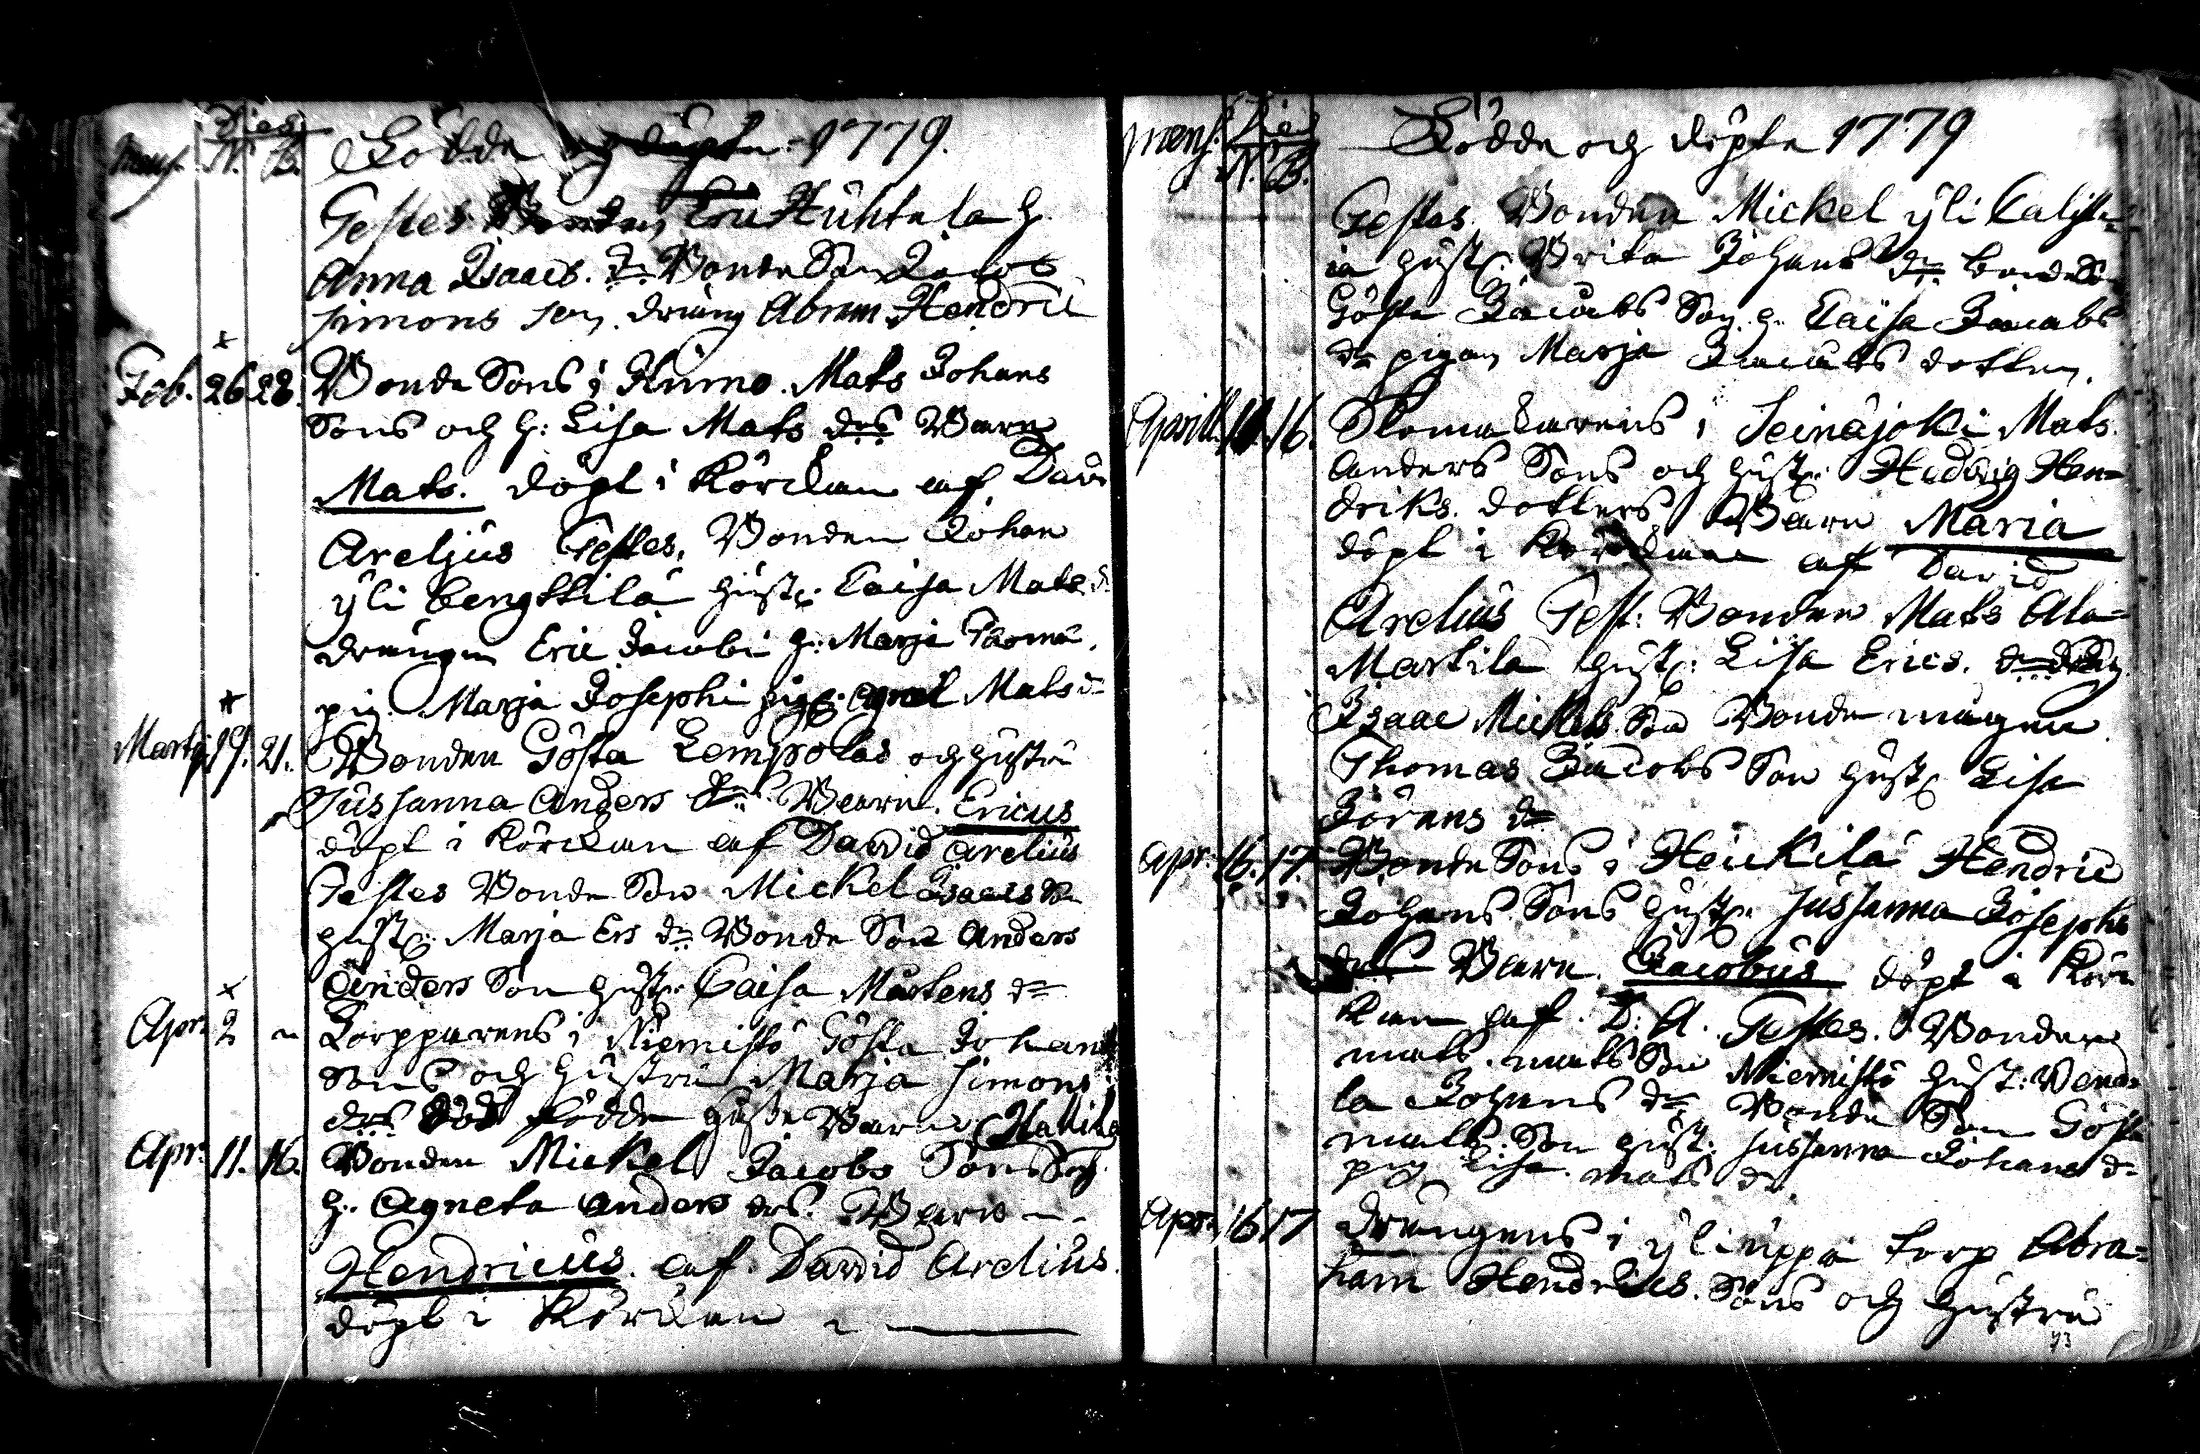 Mens. Dies N. B.
Födde och döpte 1779.
Testes Bonden Eric Huhtala h.
Anna Isaacs. dr Bonde Son Jacob
Simons son. dräng Abram Hendric
Feb. 26 28. Bonde Sons i Kumo. Mats Johans
Sons och h: Lisa Mats drs Barn
Mats. döpt i Körckan af David
Arelius Testes, Bonden Johan
yli bengttilä hustr: Caisa Mats d
drängen Eric Jacobi h: Marja Thome.
pig. Marja Josephi pig: Mats dr
Marty 19. 21. Bonden Gösta Lempolas och hustru
Sussanna Anders drs Barn. Ericus
döpt i Körckan af David Arelius
Testes Bonde Son Mickel Isaacs Son
hustr: Marja Ers dr Bonde Son Anders
Anders Son hustr: Caisa Mårtens dr
Apr: 2 Torpparens i Niemistö Gösta Johans
Sons och hustru Marja Simons
drs död födde Barn
Apr: 11. 16. Bonden Mickel Jacobs Sons och
h: Agneta Anders drs. Barn
Hendricus. af David Arelius.
döpt i Körckan
Mens. Dies N. B.
Födde och döpte 1779
Testes. Bonden Mickel yli
hustr: Brita Johans dr bonde Son
Gösta Jacobs Son h. Caisa Jacobs
dr pigan Marja Jacobs dotter.
Aprill. 16. Skomakarens i Seinäjoki Mats
Anders Sons och hustr: Hedvig Hen=
driks. dotters Barn Maria
döpt i Körckan af David
Arelius Test: Bonden Mats Ala=
Markila hustr: Lisa Erics. dr
Isaac Mickels Son Bonde mågen
Thomas Jacobs Son hustr Lisa
Jörans dr
Apr: 16. 17. Bonde Sons i Heickilä Hendric
Johans Sons hustr: Sussanna Josephs
drs Barn. Jacobus döpt i Kör=
kan af. D: A. Testes. Bonden
mats. mats Son Niemistö hust: Vend=
la Johans dr Bonde Son Gösta
mats. Son hust: Sussanna Johans dr
pig Lisa. mats dr
Apr: 16 17 drängens i yliuppa torp Abra=
ham Hendrics. Sons och hustru
43